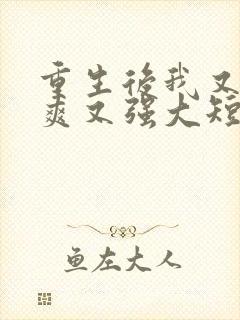 重生后我又
爽又强大短
鱼左大人